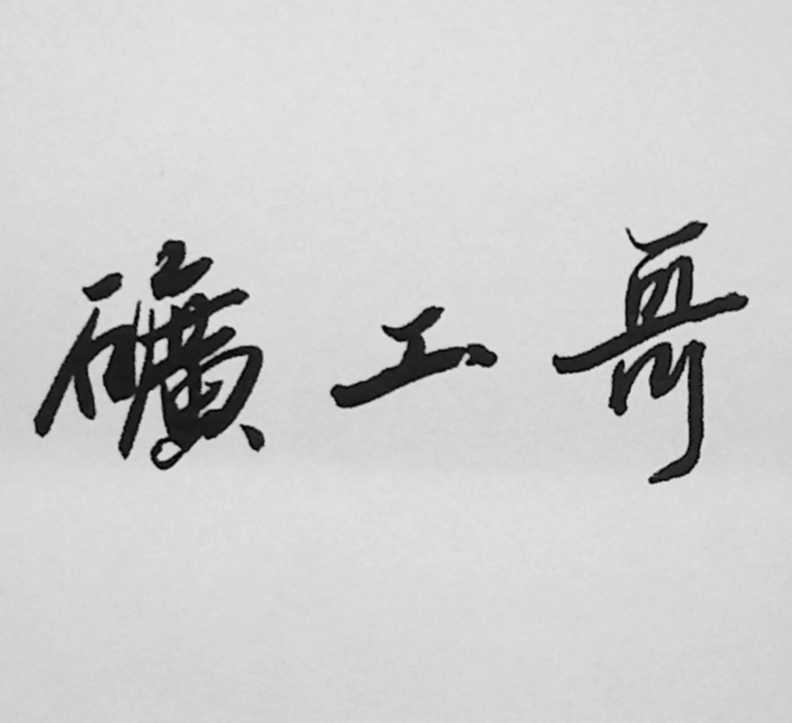 礦工哥